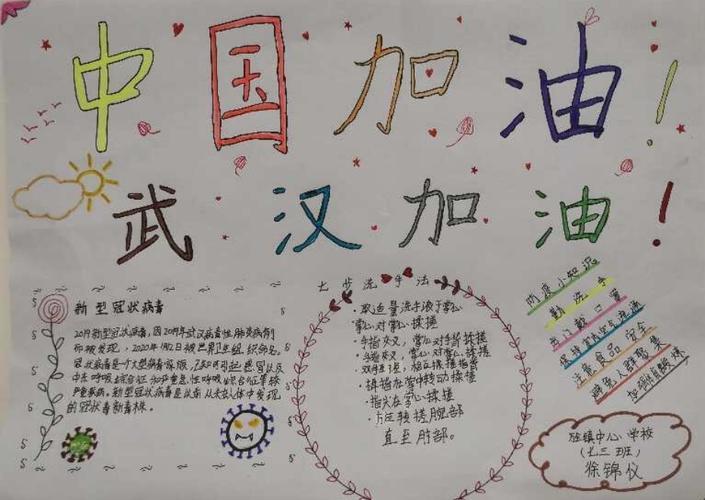 中国加油!
武汉加油!
新型冠状病毒
2019新型冠状病毒,因2019年武汉病毒性肺炎病例
而被发现,2020年1月12日被世界卫生组织命名。
冠状病毒是一个大型病毒家族,已知可引起感冒以及
中东呼吸综合征和严重急性呼吸综合征等较
严重疾病。新型冠状病毒是以前从未在人体中发现
的冠状病毒新毒株。
七步洗手法
·取适量洗手液于掌心
·掌心对掌心揉搓
·手指交叉,掌心对手背揉搓
·手指交叉,掌心对掌心揉搓
·双手互握,相互揉搓指背
·拇指在掌中转动揉搓
·指尖在掌心揉搓
·旋转揉搓腕部
直至肘部。
防疫小知识
勤洗手
出门戴口罩
保持室内空气流通
注意食品安全
避免人群聚集
加强体育锻炼
镇中心学校
(七三班)
徐锦仪